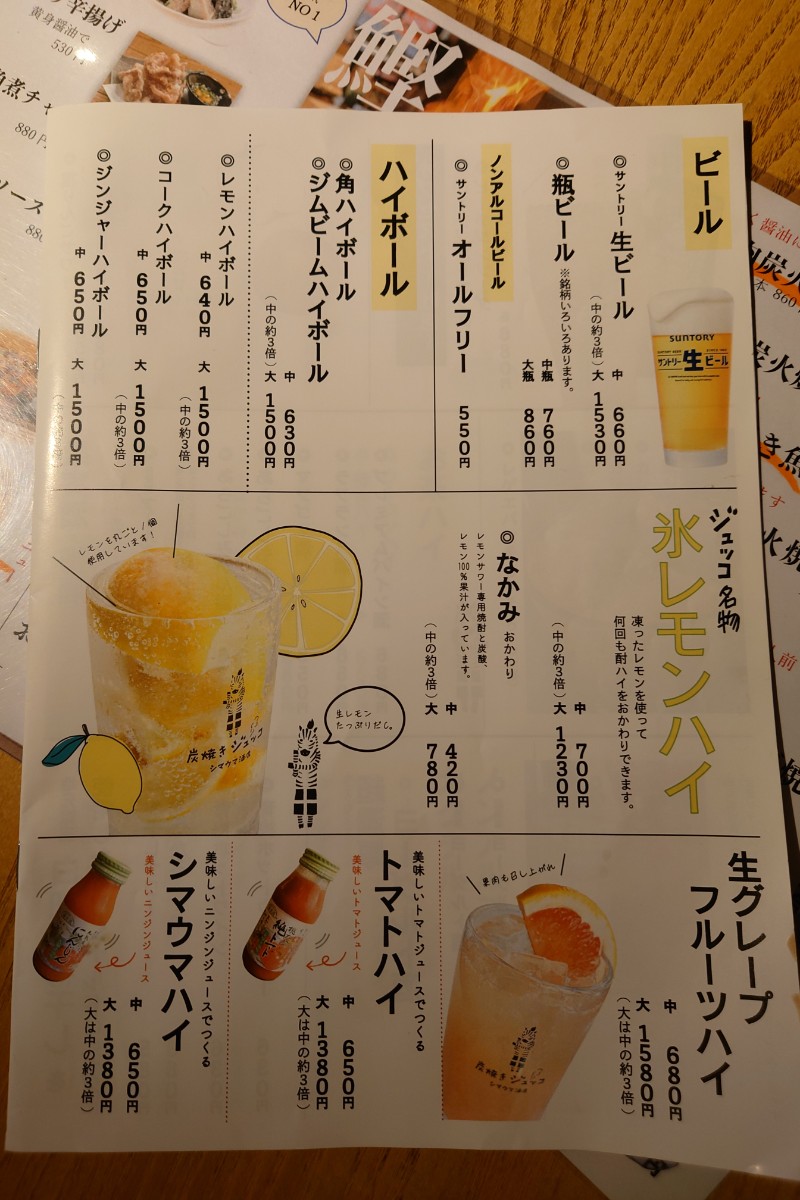 ビール
◎サントリー生ビール
中 660円
(中の約3倍)大 1530円
SUNTORY
サントリー生ビール
◎瓶ビール ※銘柄いろいろあります。
中瓶 760円
大瓶 860円
ノンアルコールビール
◎サントリーオールフリー 550円
ハイボール
◎角ハイボール
◎ジムビームハイボール
中 630円
(中の約3倍)大 1500円
◎レモンハイボール
中 640円 大 1500円
(中の約3倍)
◎コークハイボール
中 650円 大 1500円
(中の約3倍)
◎ジンジャーハイボール
中 650円 大 1500円
ジュッコ名物
氷レモンハイ
凍ったレモンを使って
何回も酎ハイをおかわりできます。
中 700円
(中の約3倍)大 1230円
◎なかみ おかわり
レモンサワー専用焼酎と炭酸、
レモン100%果汁が入っています。
中 420円
(中の約3倍)大 780円
生レモン
たっぷりだし。
レモンを丸ごと1個
使用しています!
炭焼きジュッコ
シマウマ酒店
生グレープ
フルーツハイ
中 680円
大 1580円
(大は中の約3倍)
果肉も召し上がれ
炭焼きジュッコ
シマウマ酒店
美味しいトマトジュースでつくる
トマトハイ
中 650円
大 1380円
(大は中の約3倍)
美味しいトマトジュース
美味しいニンジンジュースでつくる
シマウマハイ
中 650円
大 1380円
(大は中の約3倍)
美味しいニンジンジュース
にんじん
揚げ
黄身醤油で
530円
NO1
鰹
角煮チャ
880円
ソース
醤油
炭火
本 860
炭火
き魚
火焼
人前